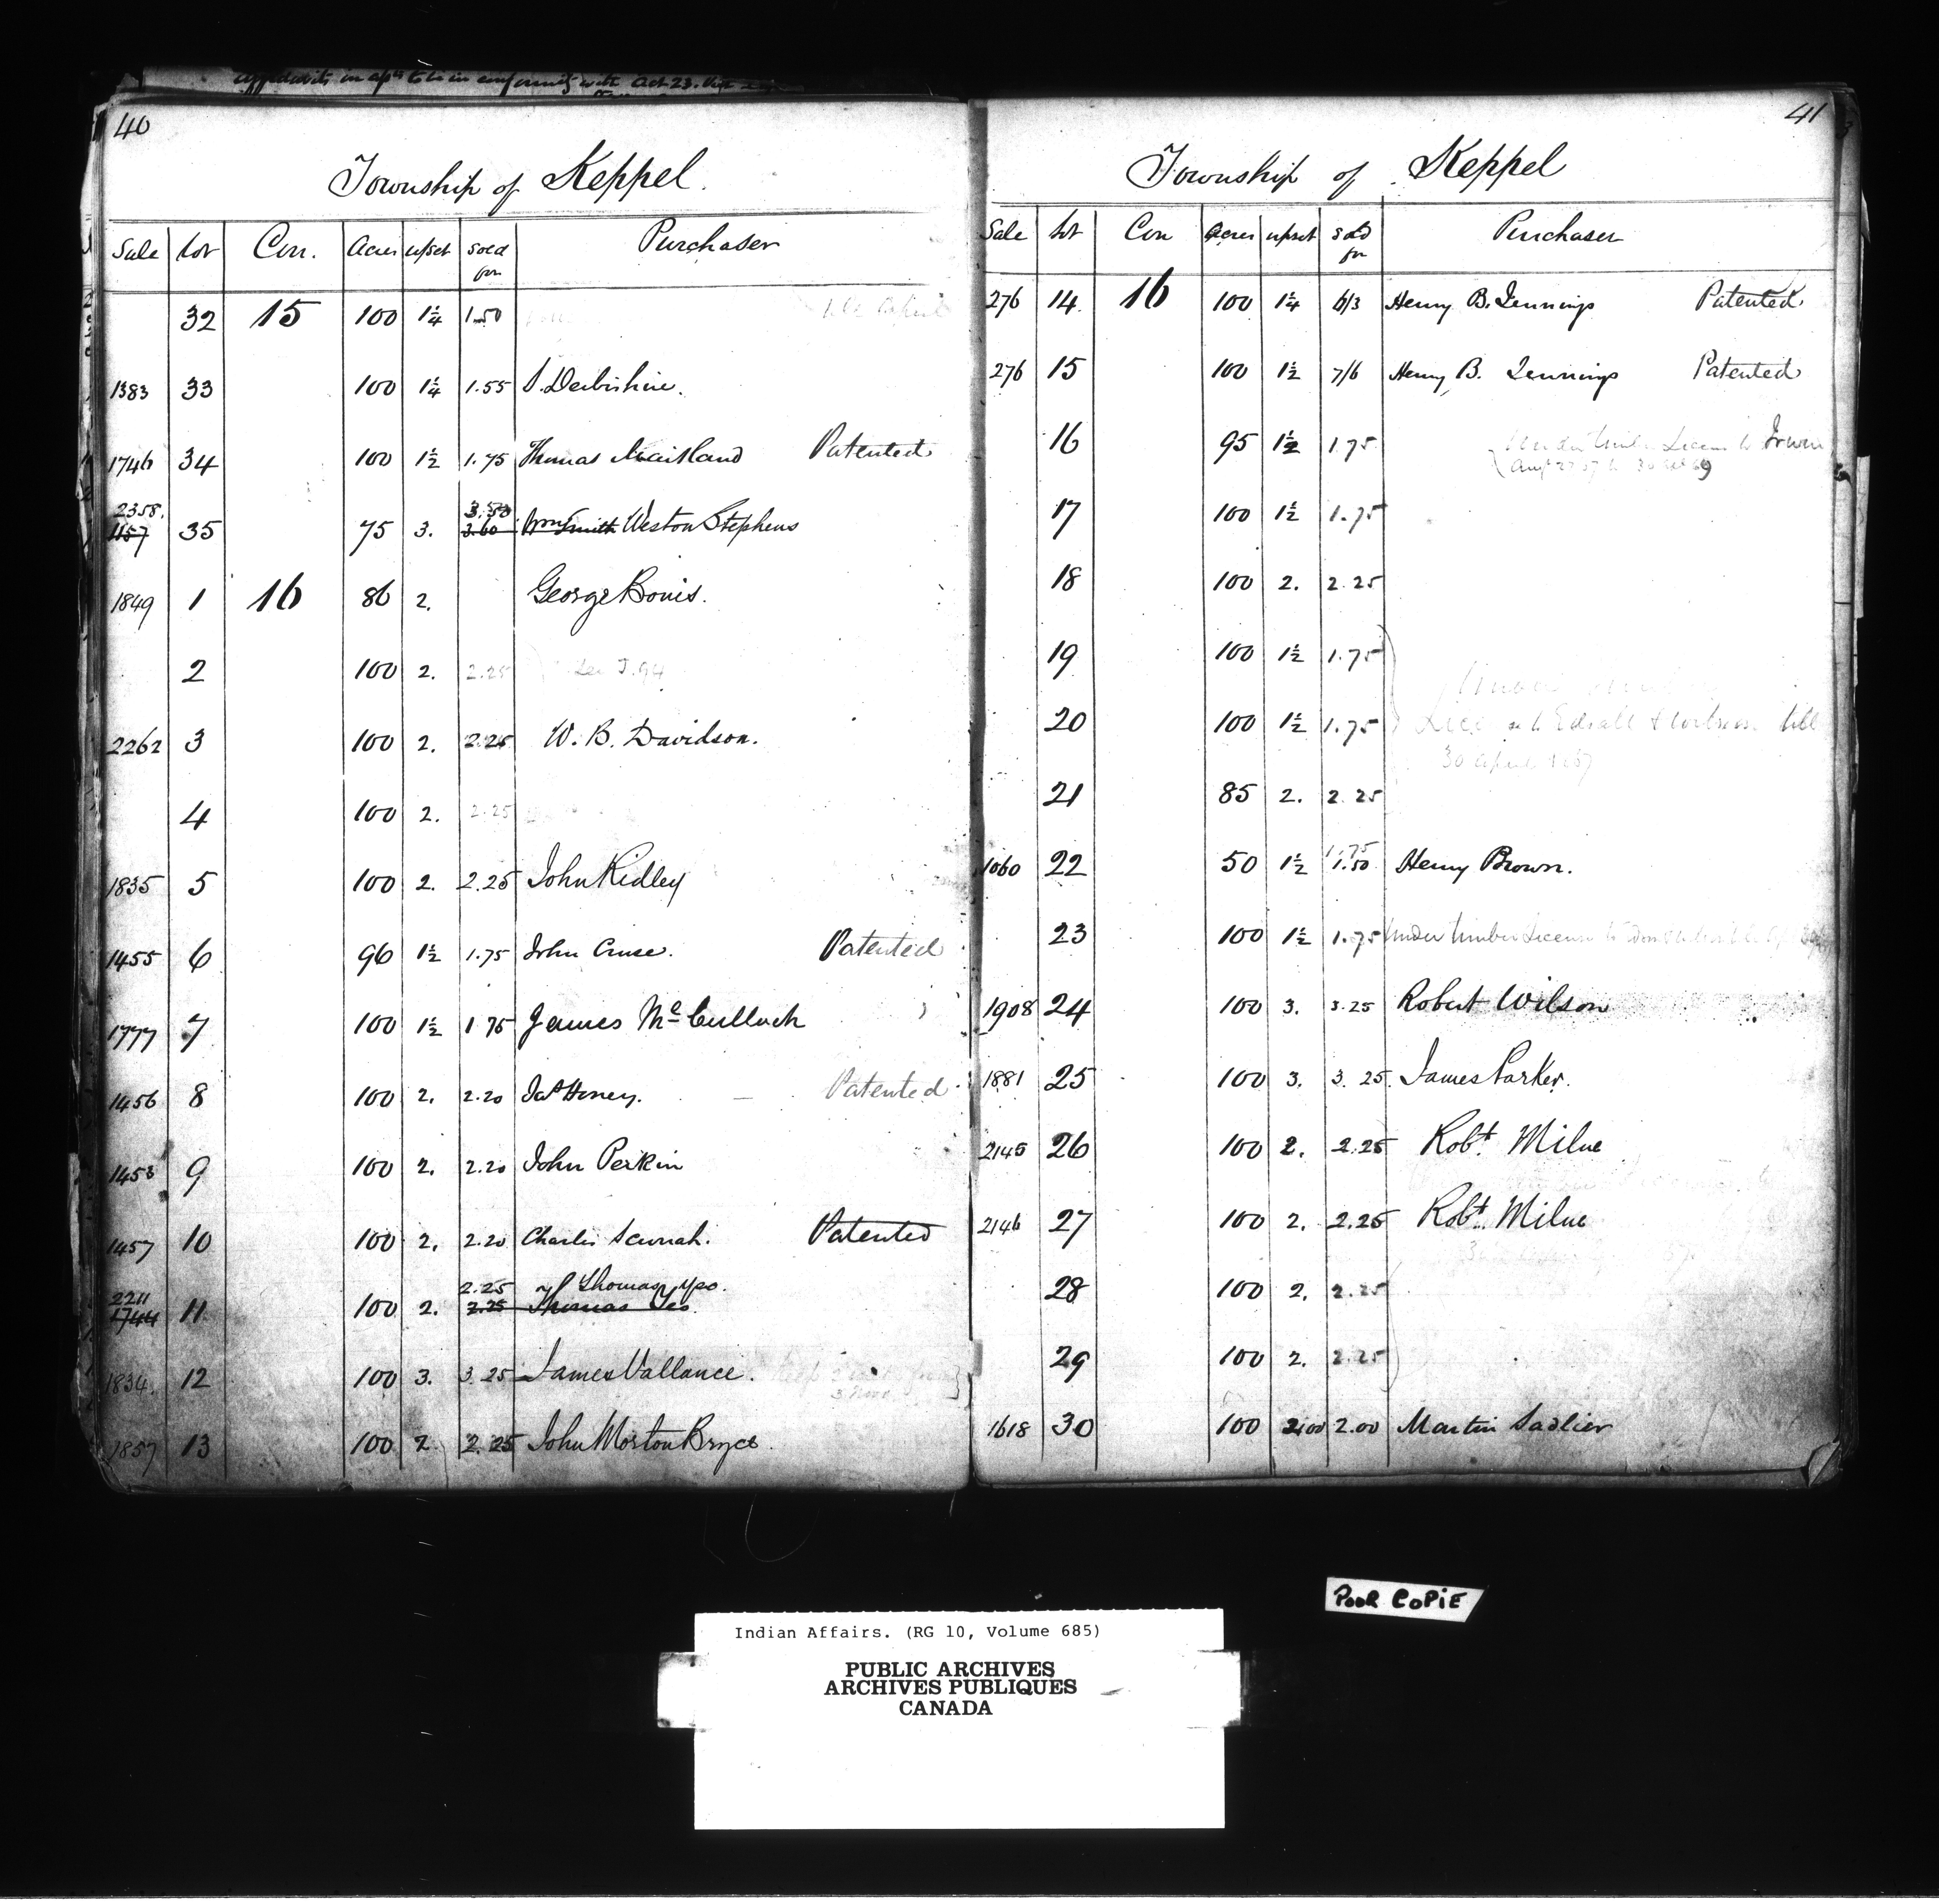 Affidavits in
to be in conformity with Act 23. Vic
40
Township of Keppel.
Sale Lot Con. Acres upset sold for Purchaser
32 15 100 1¼ 1.50
1383 33 100 1¼ 1.55 S. Derbishire.
1746 34 100 1½ 1.75 Thomas Maitland Patented
2358. 3.50
1157 35 75 3. 3.60 Wm Smith Weston Stephens
1849 1 16 86 2. George Bonis.
2 100 2. 2.25
2262 3 100 2. 2.25 W. B. Davidson.
4 100 2. 2.25
1835 5 100 2. 2.25 John Ridley
1455 6 96 1½ 1.75 John Cruse. Patented
1777 7 100 1½ 1 75 James McCulloch
1456 8 100 2. 2.20 Jas Honey. Patented
1453 9 100 2. 2.20 John Perkin
1457 10 100 2. 2.20 Charles Patented
2211 2.25 Thomas Yeo.
1744 11 100 2. 2.25 Thomas Yeo.
1834. 12 100 3. 3.25 James Vallance.
1857 13 100 2 2.25 John Morton Bryce.
41
Township of Keppel
Sale Lot Con Acres upset sold for Purchaser
276 14 16 100 1¼ 6/3 Henry B. Jennings Patented
276 15 100 1½ 7/6 Henry B. Jennings Patented
16 95 1½ 1.75 Under Timber License to Irwin
17 100 1½ 1.75
18 100 2. 2.25
19 100 1½ 1.75
20 100 1½ 1.75 till
30 April
21 85 2. 2.25
1.75
1060 22 50 1½ 1.50 Henry Brown.
23 100 1½ 1.75 Under Timber License to
1908 24 100 3. 3.25 Robert Wilson
1881 25 100 3. 3.25 James Parker.
2145 26 100 2. 2.25 Robt. Milne
2146 27 100 2. 2.25 Robt. Milne
28 100 2. 2.25
29 100 2. 2.25
1618 30 100 2.00 2.00 Martin Sadlier
POOR COPIE
Indian Affairs. (RG 10, Volume 685)
PUBLIC ARCHIVES
ARCHIVES PUBLIQUES
CANADA